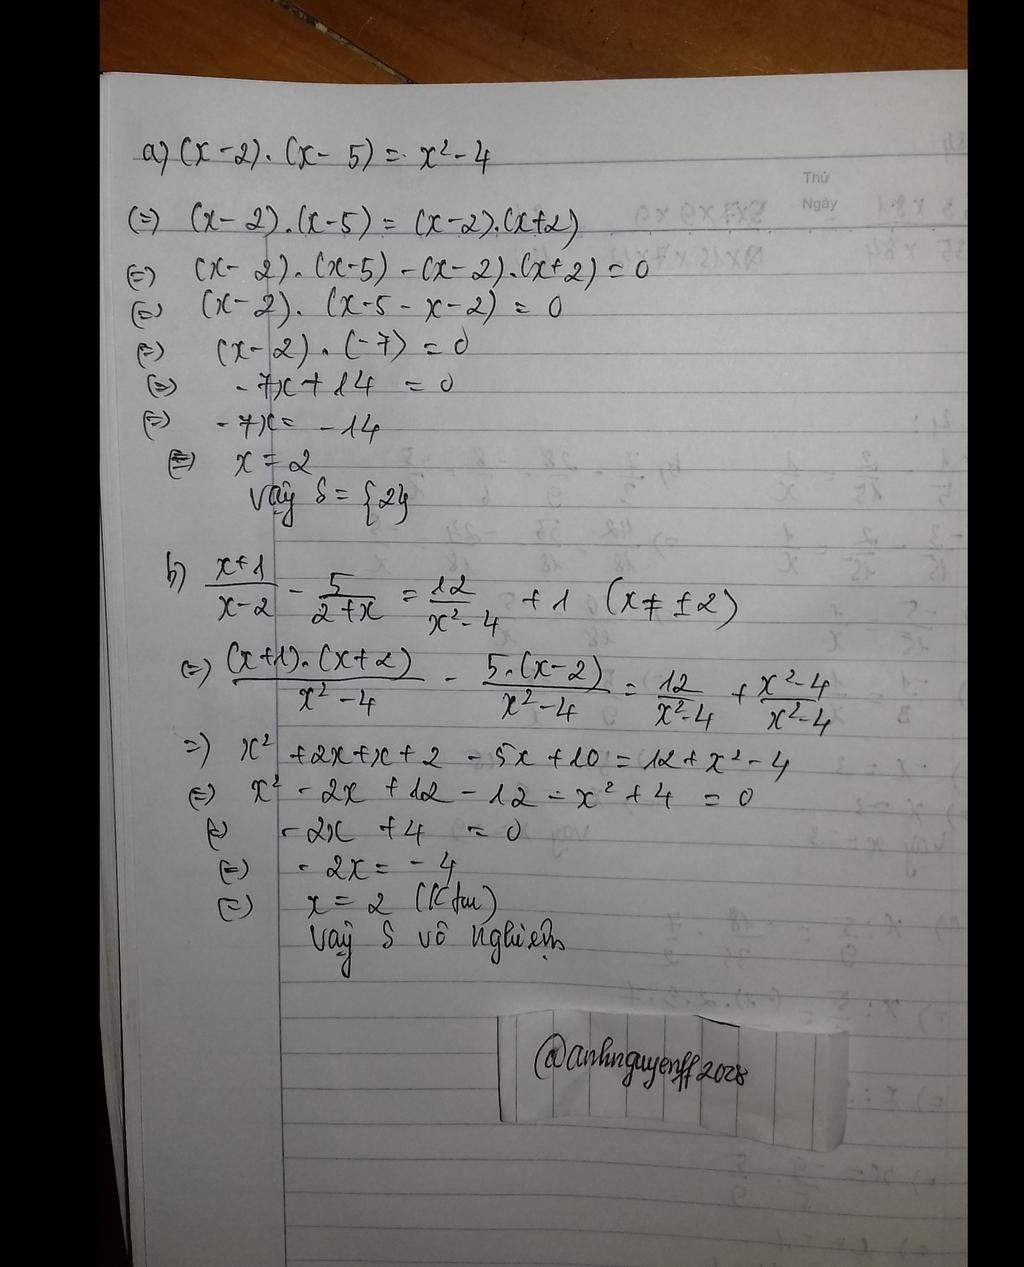 a) (x-2).(x-5) = x²-4
Thứ
Ngày
(=) (x-2).(x-5) = (x-2).(x+2)
(=) (x-2).(x-5)-(x-2).(x+2)=0
(=) (x-2).(x-5-x-2) = 0
(=) (x-2).(-7) = 0
(=) -7x+14 = 0
(=) -7x = -14
(=) x = 2
Vậy S = {2}
b) \frac{x+1}{x-2} - \frac{5}{2+x} = \frac{12}{x²-4} + 1 (x ≠ ±2)
=) \frac{(x+1).(x+2)}{x²-4} - \frac{5.(x-2)}{x²-4} = \frac{12}{x²-4} + \frac{x²-4}{x²-4}
=) x² +2x+x+2 - 5x+10 = 12+x²-4
(=) x² - 2x + 12 - 12 - x² + 4 = 0
(=) -2x + 4 = 0
(=) -2x = -4
(=) x = 2 (Ktm)
Vậy S vô nghiệm
@anhnguyenff2028